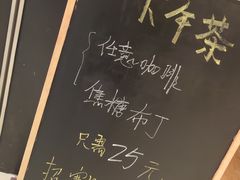 下午茶
任意咖啡
焦糖布丁
只需25元
招